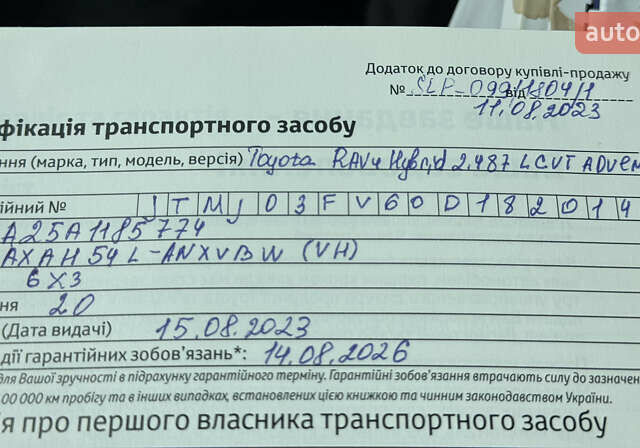 auto
Додаток до договору купівлі-продажу
№ SLP-099/1804/1 від
11.08.2023
фікація транспортного засобу
ння (марка, тип, модель, версія) Toyota RAV4 Hybrid 2.487 L CVT ADVEN
ійний № JTMJ03FV60D182014
A25A1185774
AXAH54L-ANXVBW (VH)
6X3
ня 20
(Дата видачі) 15.08.2023
дії гарантійних зобов'язань*: 14.08.2026
для Вашої зручності в підрахунку гарантійного терміну. Гарантійні зобов'язання втрачають силу до зазначен
00 000 км пробігу та в інших випадках, встановлених цією книжкою та чинним законодавством України.
я про першого власника транспортного засобу